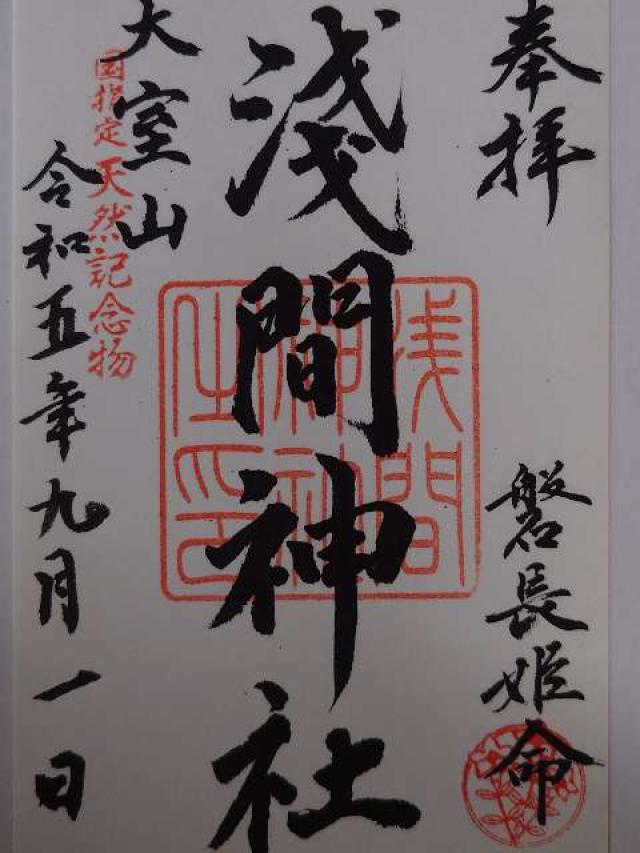 奉拝
磐長姫命
浅間神社
大室山
国指定天然記念物
令和五年九月一日